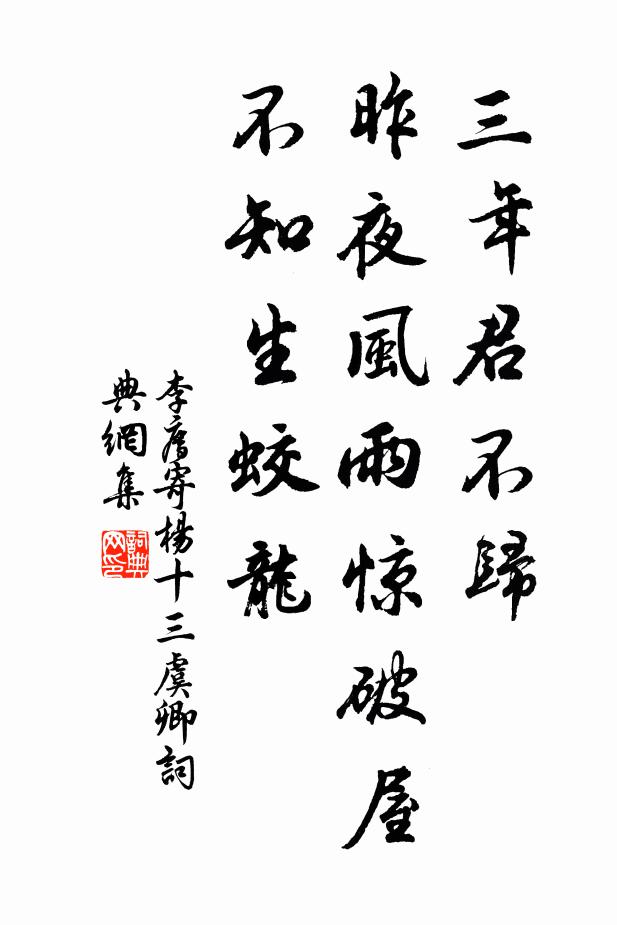 三年君不歸
昨夜風雨惊破屋
不知生蛟龍
李廌寄楊十三虞卿詞
典網集
詞典网印